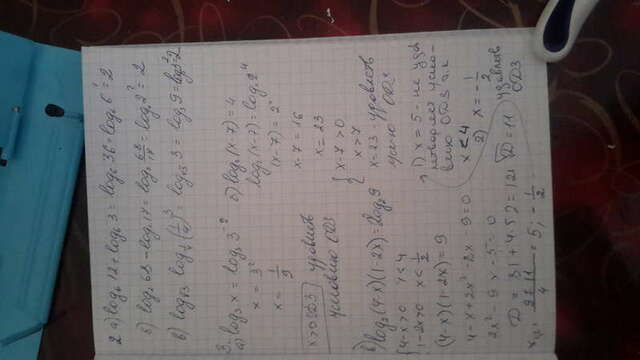 2 а) log₆ 12 + log₆ 3 = log₆ 36 = log₆ 6² = 2
б) log₇ 68 - log₇ 17 = log₂ 68/17 = log₂ 2² = 2
в) 3 = log₃ 9 = log₃ 3² = 2
3.
а) log₃ x = log₃ 3⁻²
x = 3⁻²
x = 1/9
x > 0 ОДЗ удовлев
условию ОДЗ
б) log₂(x-7) = 4
log₂(x-7) = log₂ 2⁴
(x-7) = 2⁴
x-7 = 16
x = 23
{ x-7 > 0
x > 7
x = 23 удовлев
усло ОДЗ
в) log₃(4-x)(1-2x) = log₃ 9
{ 4-x > 0 x < 4
1-2x > 0 x < 1/2
(4-x)(1-2x) = 9
4-x+2x²-8x-9=0
2x²-9x-5=0
D = 81 + 4·5·2 = 121 √D = 11
x₁,₂ = 9±11/4 = 5, -1/2
1) x = 5 - не удв
летворяет усло-
вию ОДЗ т.к
x < 4
2) x = -1/2
удовлев
ОДЗ